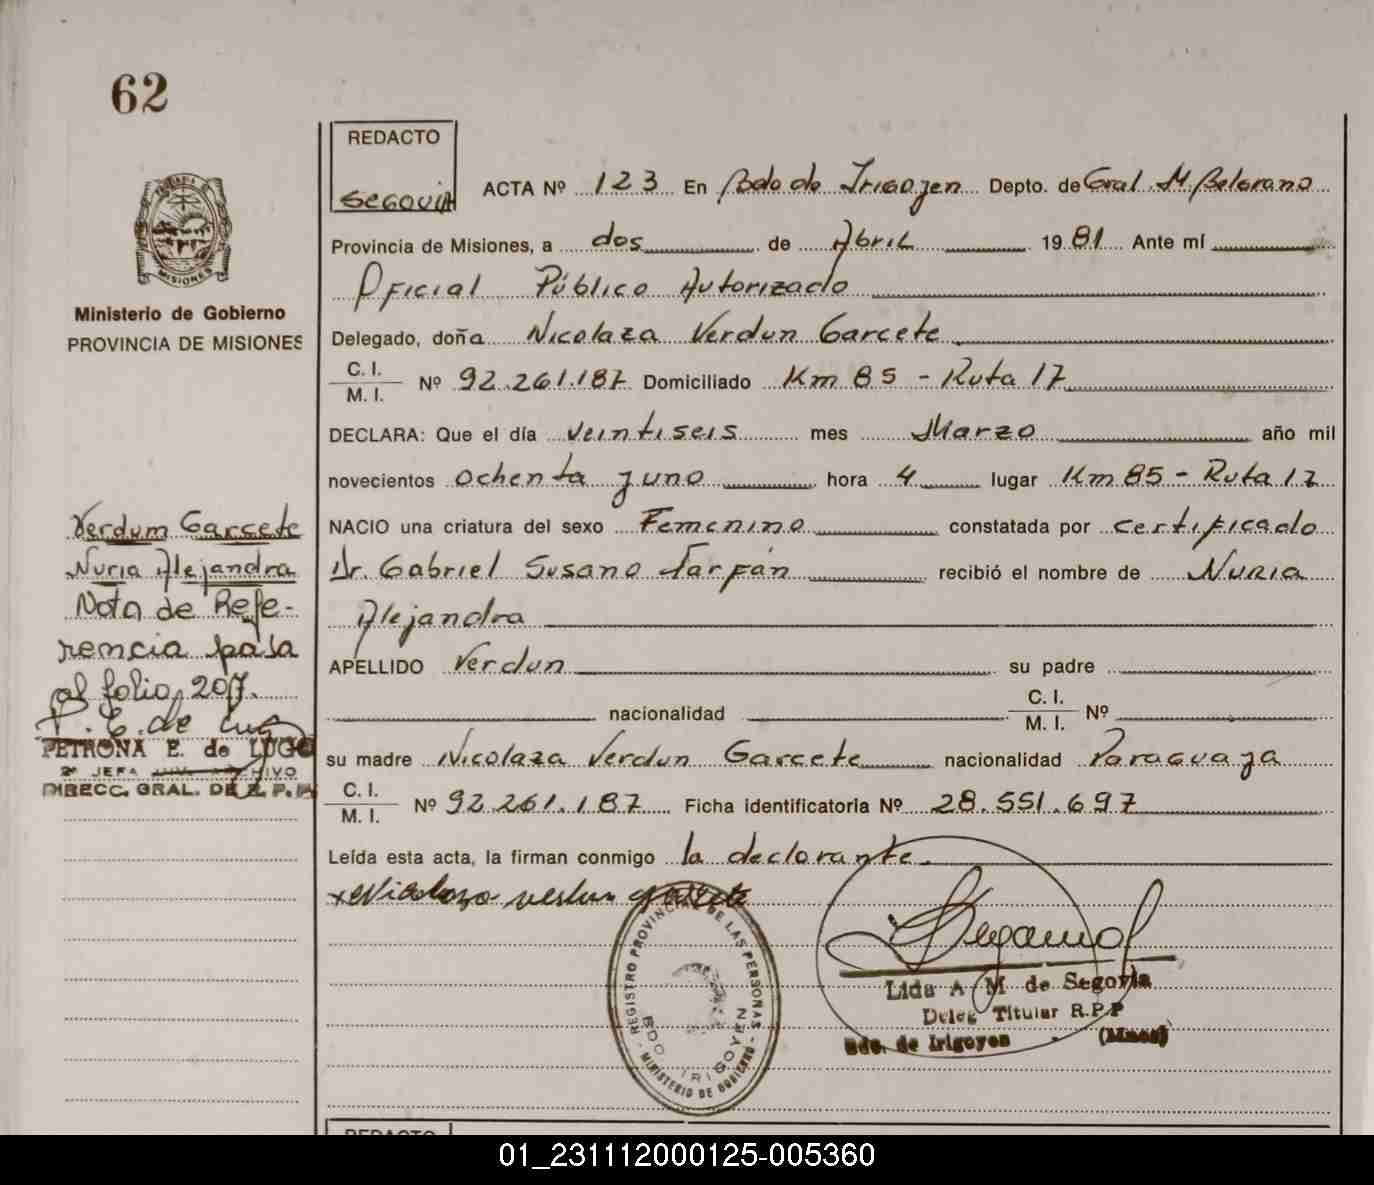 62
REDACTO
SEGOVIA
ACTA Nº 123 En Bdo de Irigoyen Depto. de Gral. M Belgrano
Provincia de Misiones, a dos de Abril 1981 Ante mí
Oficial Público Autorizado
Delegado, doña Nicolaza Verdun Garcete
C. I.
M. I.
Nº 92.261.187 Domiciliado Km 85 - Ruta 17
DECLARA: Que el día veintiseis mes Marzo año mil
novecientos ochenta y uno hora 4 lugar Km 85 - Ruta 17
NACIO una criatura del sexo Femenino constatada por certificado
Dr. Gabriel Susano Farfán recibió el nombre de Nuria
Alejandra
APELLIDO Verdun su padre
nacionalidad C. I.
M. I. Nº
su madre Nicolaza Verdun Garcete nacionalidad Paraguaya
C. I.
M. I.
Nº 92.261.187 Ficha identificatoria Nº 28.551.697
Leída esta acta, la firman conmigo la declarante.
Nicolaza verdun garcete
REGISTRO PROVINCIAL DE LAS PERSONAS
BDO IRIGOYEN
MINISTERIO DE GOBIERNO
Lida A M de Segovia
Deleg Titular R.P.P
Bdo. de Irigoyen (Mnes)
MISIONES
Ministerio de Gobierno
PROVINCIA DE MISIONES
Verdum Garcete
Nuria Alejandra
Nota de Refe-
rencia pasa
al folio 207.
P. E. de Lugo
PETRONA E. de LUGO
2ª JEFA DIV. ARCHIVO
DIRECC. GRAL. DE R. P. P.
REDACTO
01_231112000125-005360